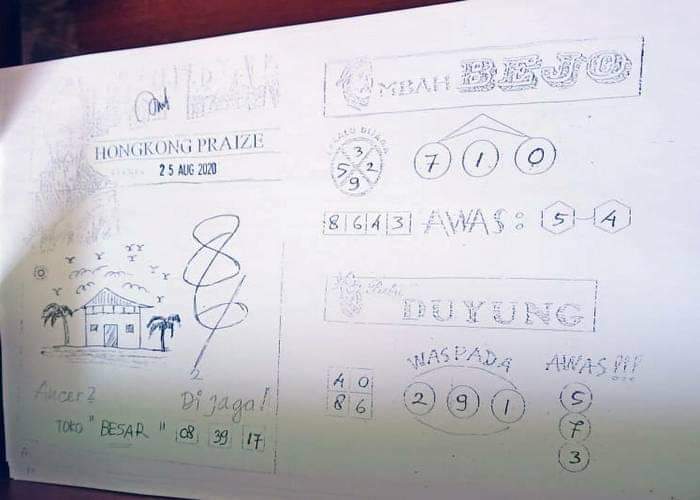 HONGKONG PRAIZE
25 AUG 2020
86
2
Ancer2
Di jaga!
TOKO "BESAR" 08 39 17
MBAH BEJO
3
5 2
9
7 1 0
8 6 4 3 AWAS: 5 - 4
Putri
DUYUNG
WASPADA
AWAS!!!
4 0
8 6
2 9 1
5
7
3